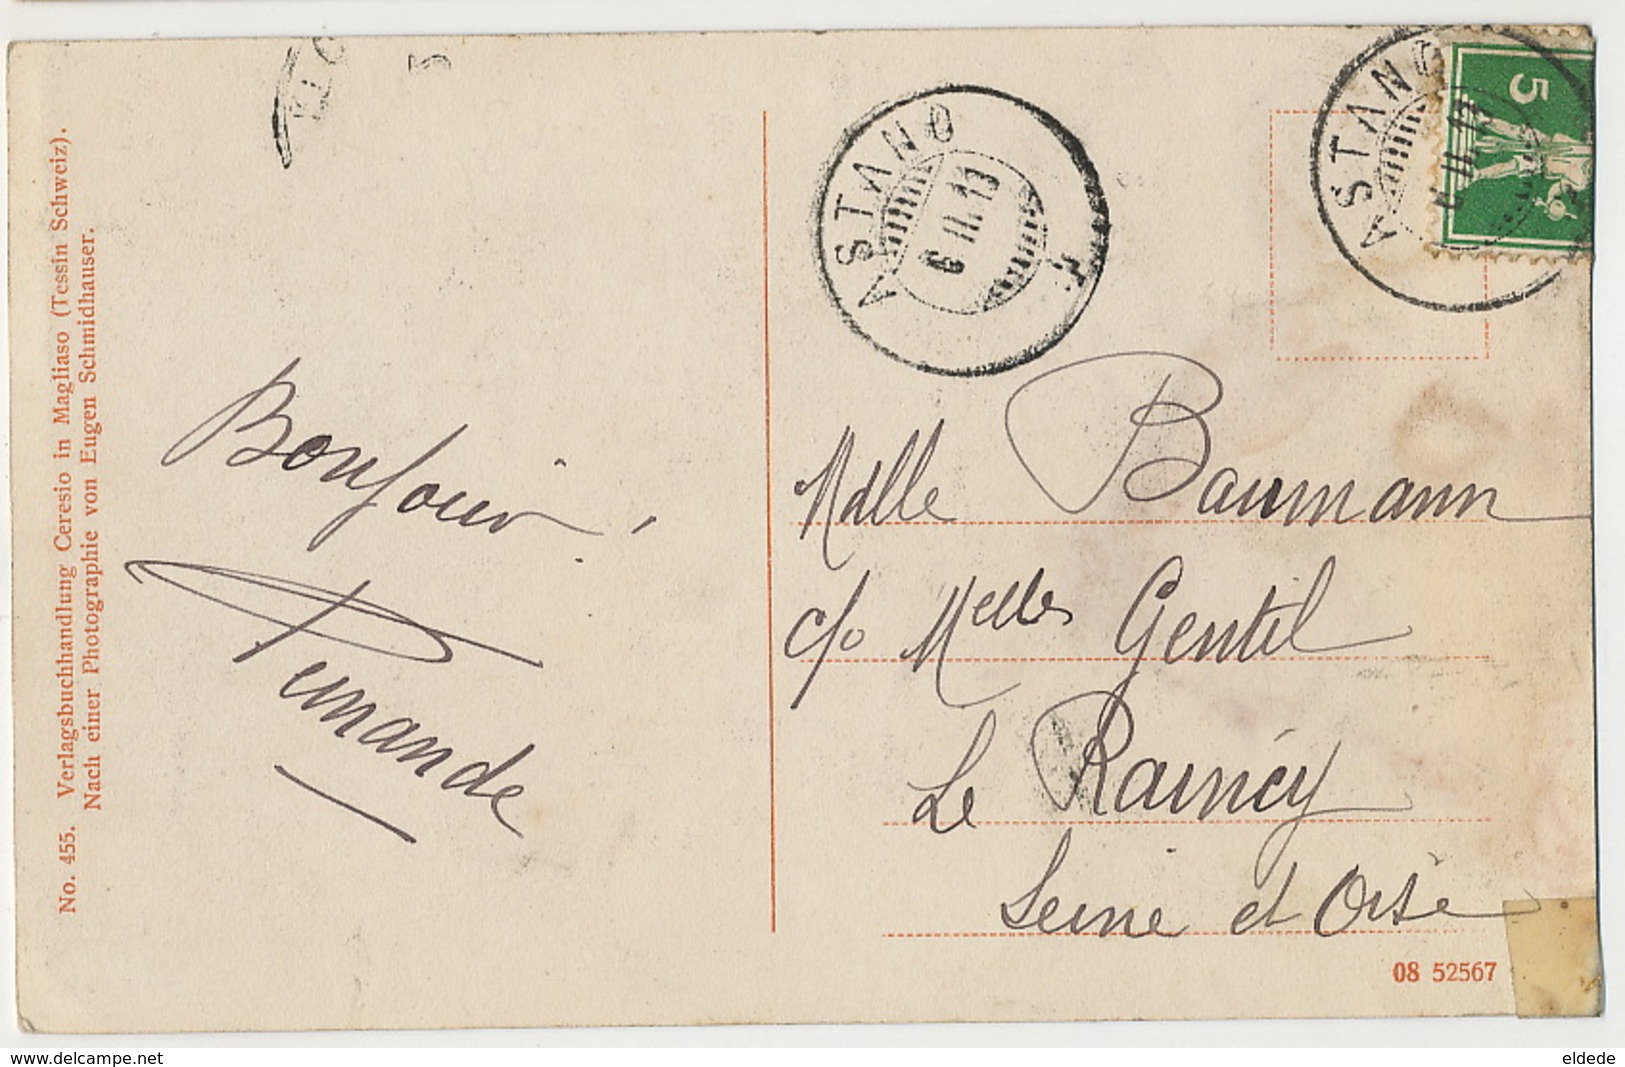 No. 455. Verlagsbuchhandlung Ceresio in Magliaso (Tessin Schweiz).
Nach einer Photographie von Eugen Schmidhauser.
Bonjour !
Fernande
ASTANO
6.III.13
ASTANO
5
Mdlle Baumann
c/o Melles Gentil
Le Raincy
Seine et Oise
08 52567
www.delcampe.net
eldede